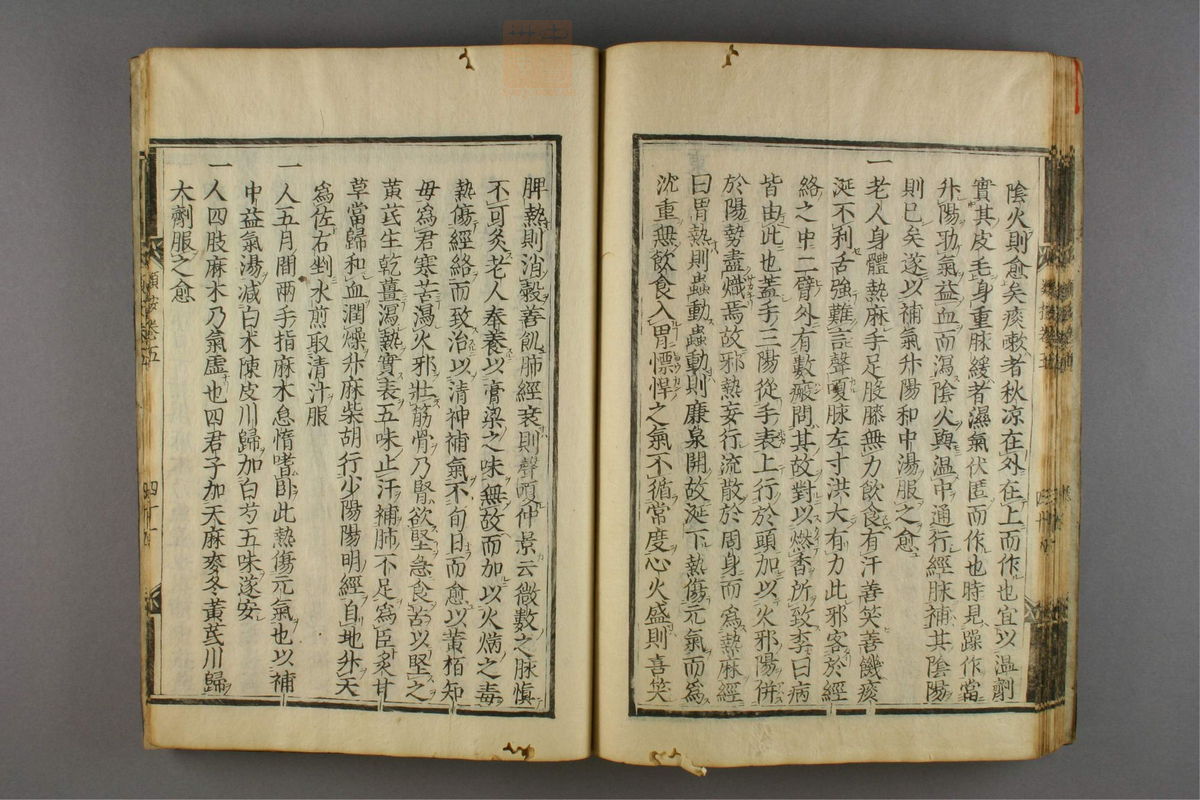 陰火則愈矣痰嗽者秋凉在外在上而作也宜以温劑
實其皮毛身重脉緩者濕氣伏匿而作也時見躁作當
升陽助氣益血而瀉陰火與温中通行經脉補其陰陽
則已矣遂以補氣升陽和中湯服之愈
一老人身體熱麻手足股膝無力飲食有汗善笑善饑痰
涎不利舌強難言聲嗄脉左寸洪大有力此邪客於經
絡之中二臂外有數瘢問其故對以燃香所致李曰病
皆由此也蓋手三陽從手表上行於頭加以火邪陽併
於陽勢盡熾焉故邪熱妄行流散於周身而爲熱麻經
曰胃熱則蟲動蟲動則廉泉開故涎下熱傷元氣而爲
沈重無飲食入胃慓悍之氣不循常度心火盛則喜笑
脾熱則消穀善飢肺經衰則聲嗄仲景云微數之脉愼
不可灸老人奉養以膏梁之味無故而加以火焫之毒
熱傷經絡而致治以清神補氣不旬日而愈以黄栢知
母爲君寒苦瀉火邪壯筋骨乃腎欲堅急食苦以堅之
黄芪生乾薑瀉熱實表五味止汗補肺不足爲臣炙甘
草當歸和血潤燥升麻柴胡行少陽陽明經自地升天
爲佐右剉水煎取清汁服
一人五月間兩手指麻木怠惰嗜卧此熱傷元氣也以補
中益氣湯减白朮陳皮川歸加白芍五味遂安
一人四肢麻木乃氣虛也四君子加天麻麥冬黄芪川歸
大劑服之愈
卷五
四十